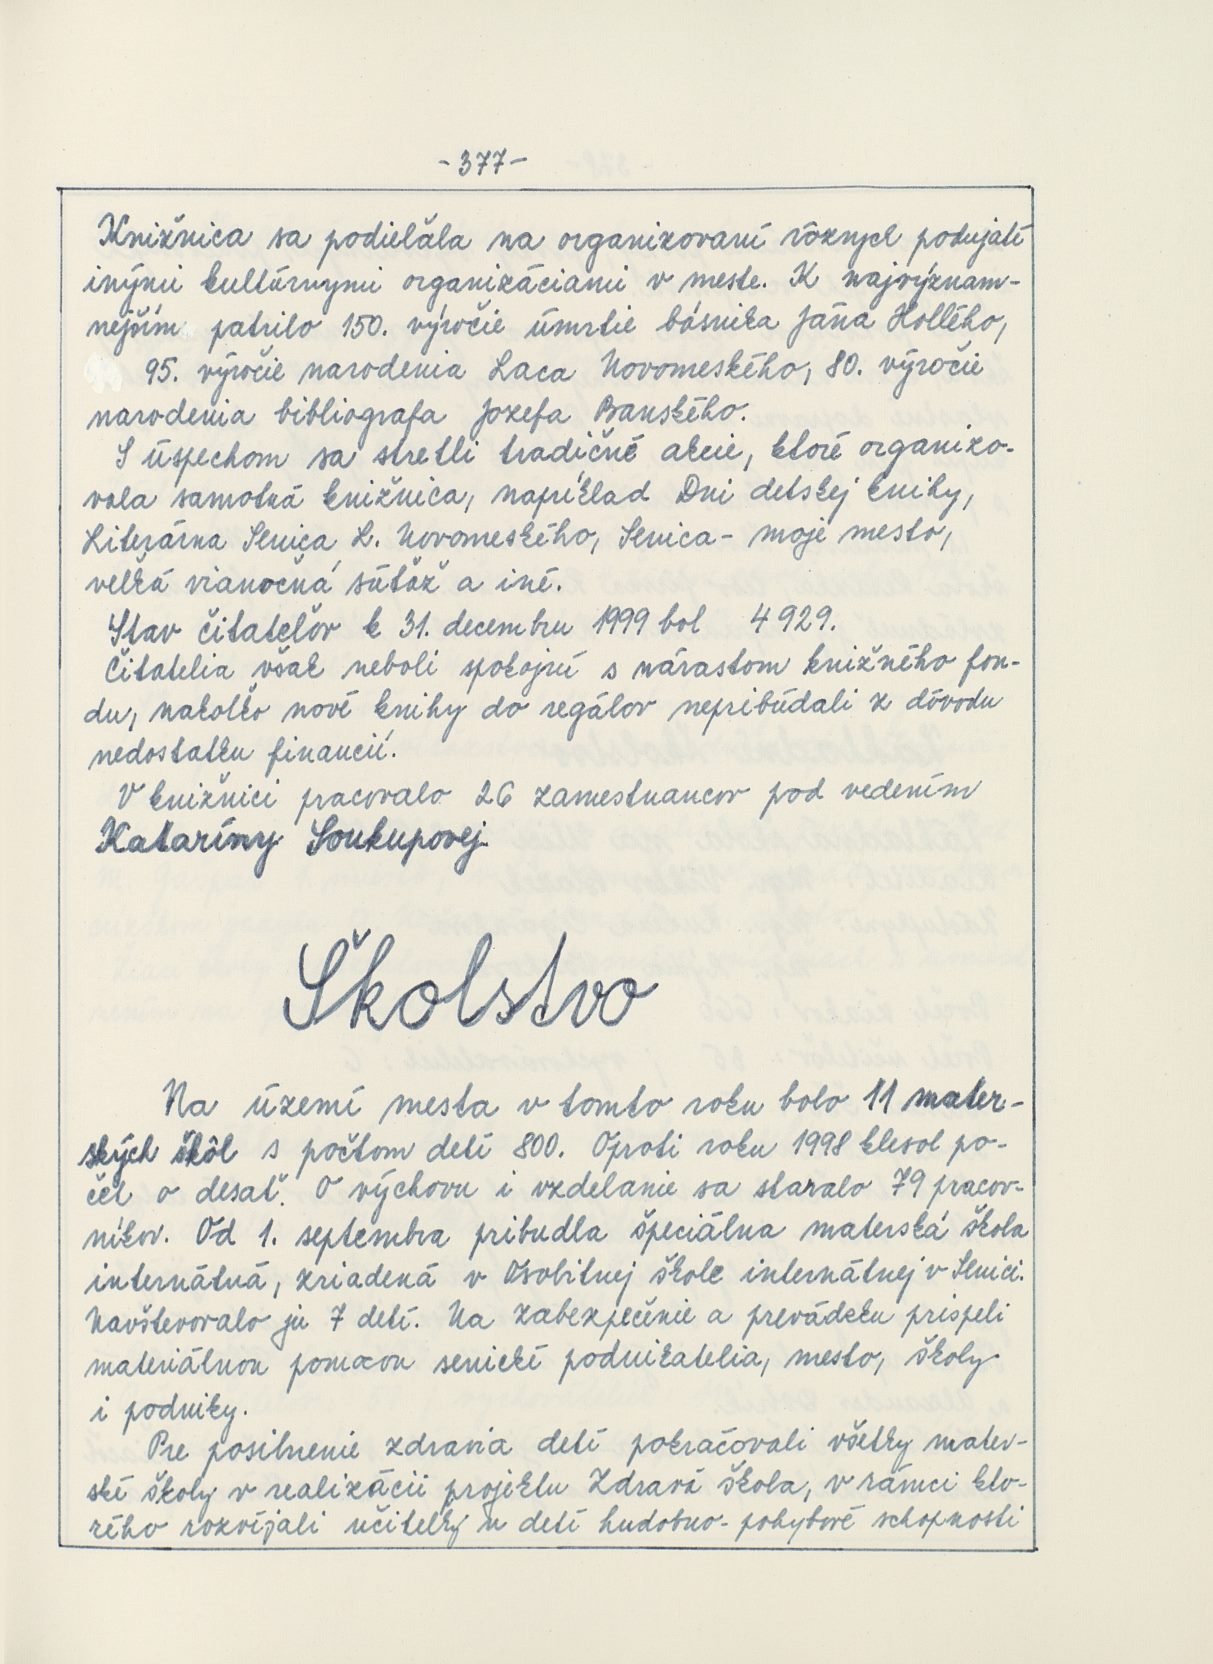 -377-
Knižnica sa podieľala na organizovaní rôznych podujatí
inými kultúrnymi organizáciami v meste. K najvýznam-
nejším patrilo 150. výročie úmrtie básnika Jána Hollého,
95. výročie narodenia Laca Novomeského, 80. výročie
narodenia bibliografa Jozefa Banského.
S úspechom sa stretli tradičné akcie, ktoré organizo-
vala samotná knižnica, napríklad Dni detskej knihy,
Literárna Senica L. Novomeského, Senica - moje mesto,
veľká vianočná súťaž a iné.
Stav čitateľov k 31. decembru 1999 bol 4 929.
Čitatelia však neboli spokojní s nárastom knižného fon-
du, nakoľko nové knihy do regálov nepribúdali z dôvodu
nedostatku financií.
V knižnici pracovalo 26 zamestnancov pod vedením
Kataríny Soukupovej.
Školstvo
Na území mesta v tomto roku bolo 11 mater-
ských škôl s počtom detí 800. Oproti roku 1998 klesol po-
čet o desať. O výchovu i vzdelanie sa staralo 79 pracov-
níkov. Od 1. septembra pribudla špeciálna materská škola
internátna, zriadená v Osobitnej škole internátnej v Senici.
Navštevovalo ju 7 detí. Na zabezpečenie a prevádzku prispeli
materiálnou pomocou senickí podnikatelia, mesto, školy
i podniky.
Pre posilnenie zdravia detí pokračovali všetky mater-
ské školy v realizácii projektu Zdravá škola, v rámci kto-
rého rozvíjali učiteľky u detí hudobno-pohybové schopnosti